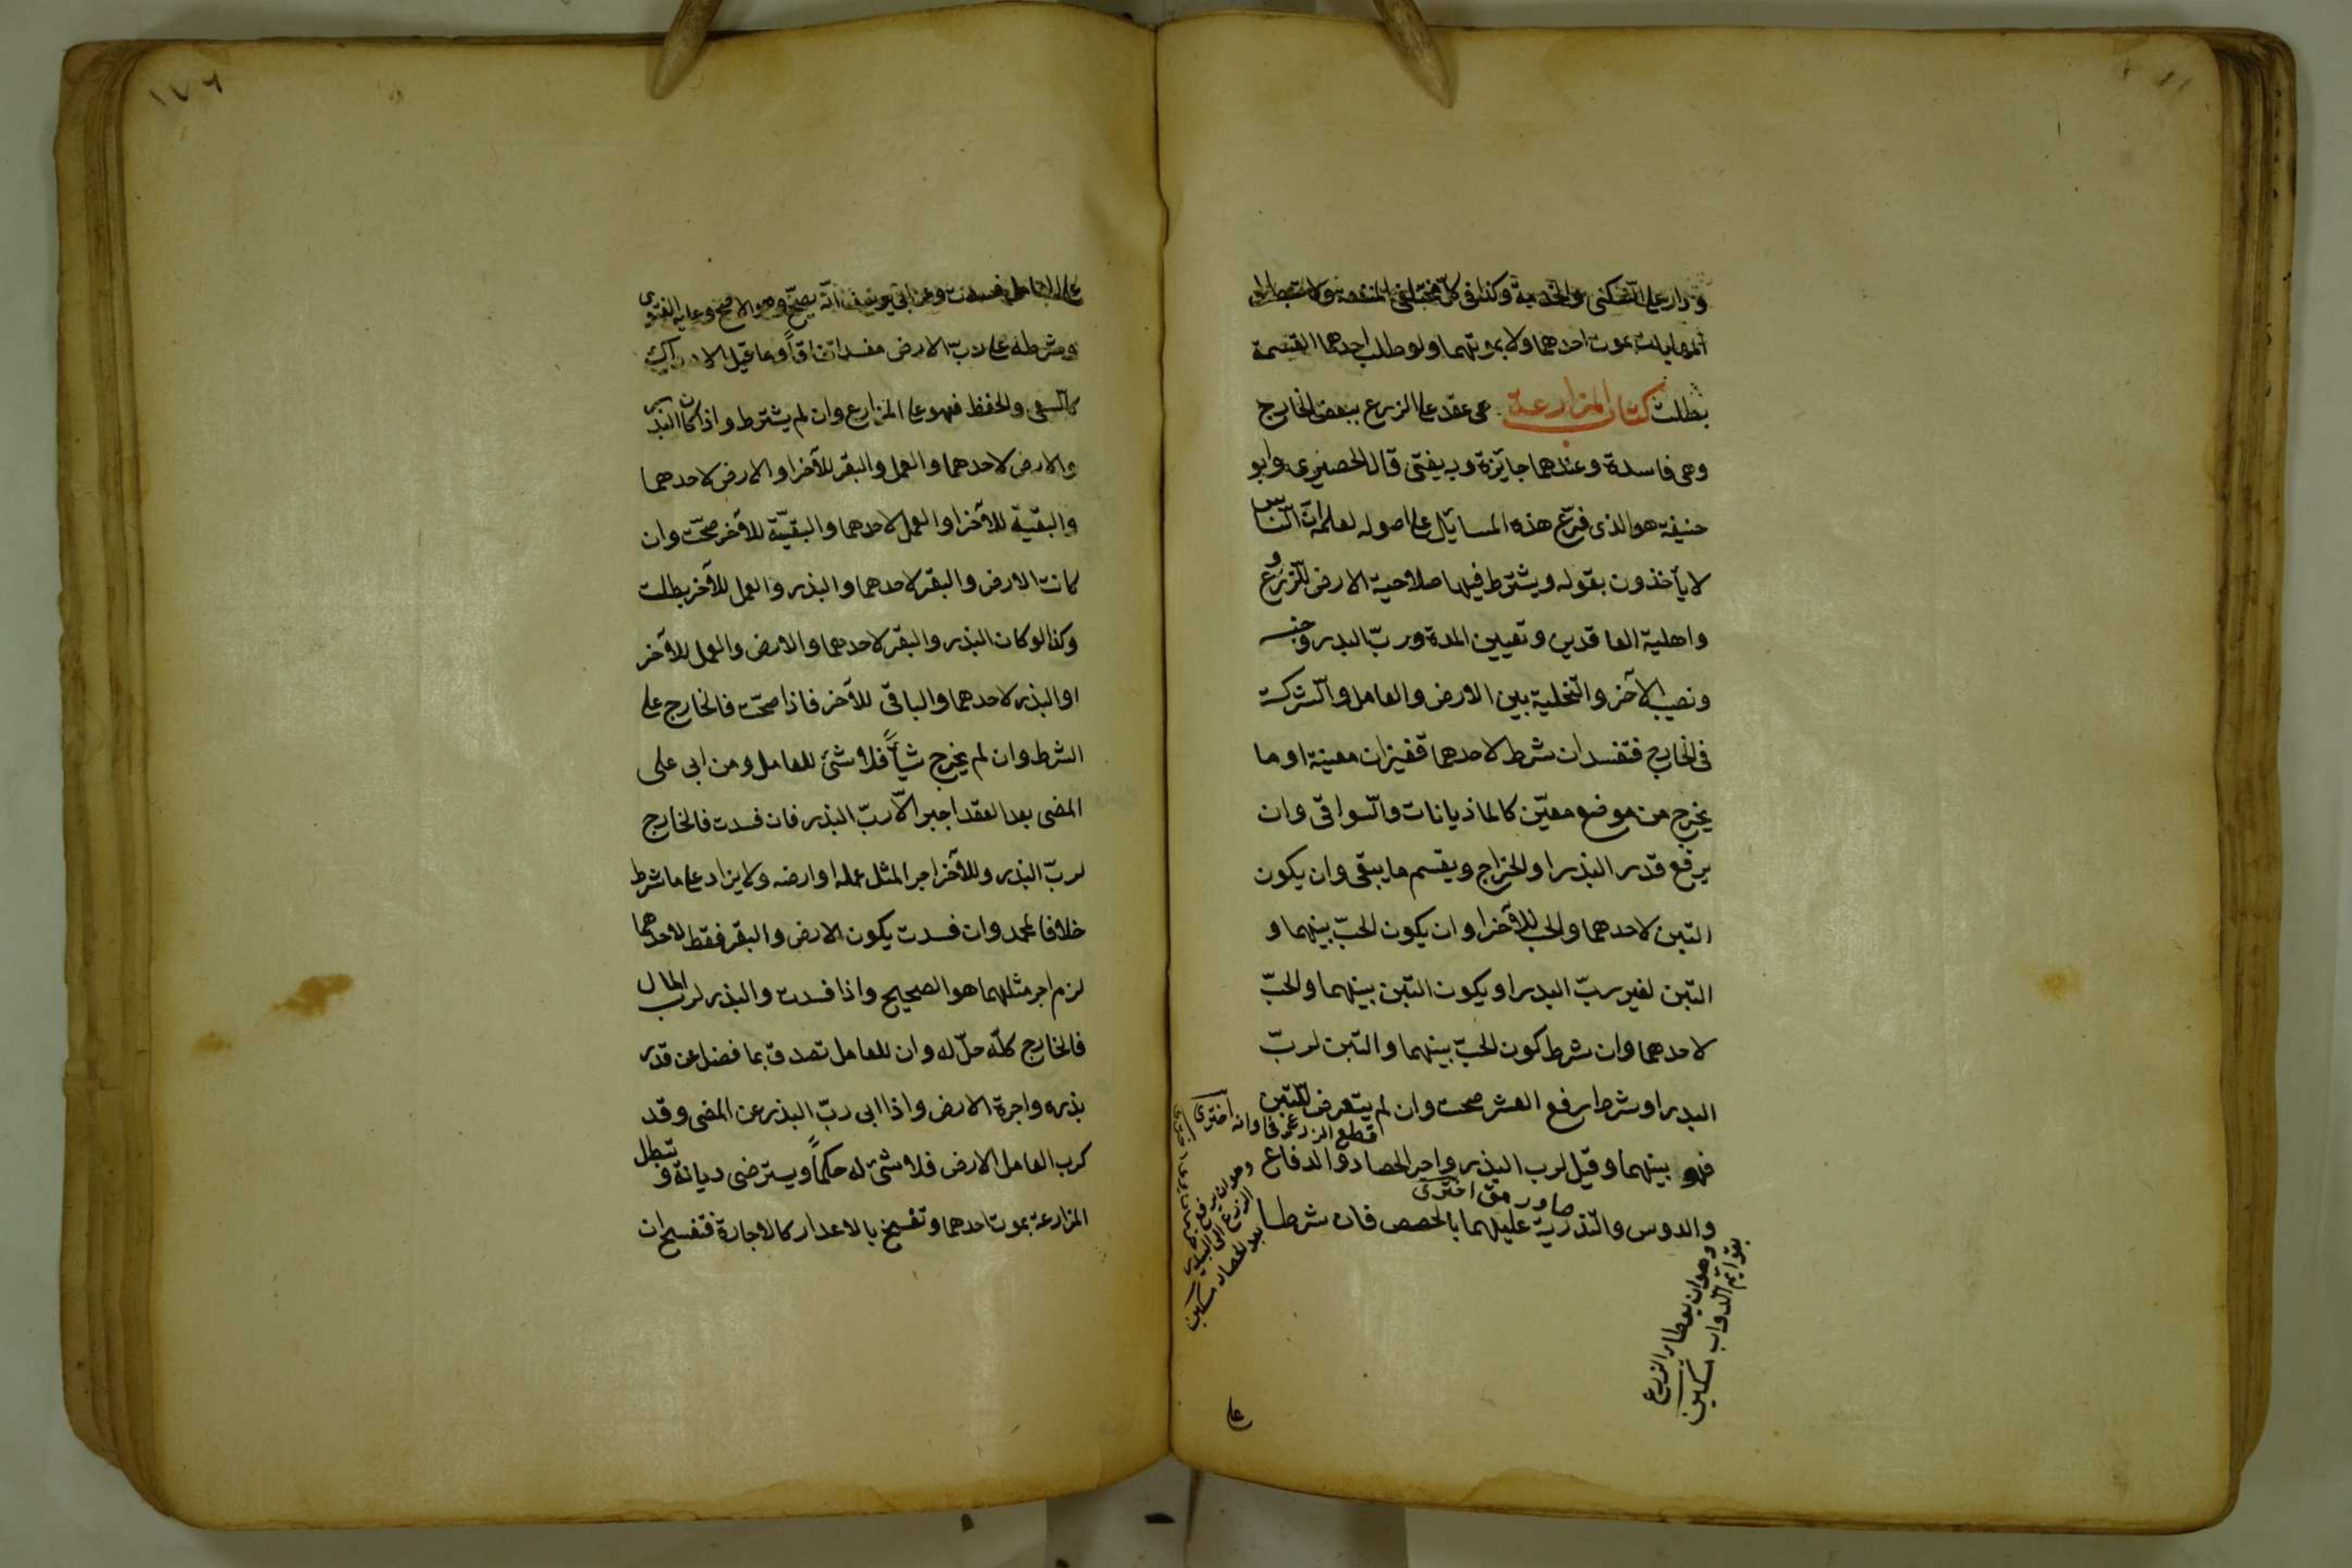 ودار على السكنى والخدمة وكذا في كل مختلفي المنفعة ولا تبطل
المهاياة بموت احدهما ولا بموتهما ولو طلب احدهما القسمة
بطلت كتاب المزارعة هي عقد على الزرع ببعض الخارج
وهي فاسدة وعندهما جايزة وبه يفتى قال الحصيري وابو
حنيفة هو الذي فرّع هذه المسايل على اصوله لعلمه انّ النّاس
لا يأخذون بقوله ويشترط فيها صلاحية الارض للزرع و
واهلية العاقدين وتعيين المدة وربّ البدر وجنسه
ونصيب الآخر والتّخلية بين الارض والعامل والشركة
في الخارج فتفسد ان شرط لاحدهما قفيزان معينة او ما
يخرج من موضع معيّن كالماذيانات والسّواقي وان
يرفع قدر البذر او الخراج ويقسم ما يبقى وان يكون
التبن لاحدهما والحب للآخر او ان يكون الحبّ بينهما و
التبن لغير ربّ البدر او يكون التبن بينهما والحبّ
لاحدهما وان شرط كون الحبّ بينهما والتبن لربّ
البدر او شرط رفع العشر صحت وان لم يتعرض للتبن
فهو بينهما وقيل لرب البذر واجر الحصاد والدفاع
والدوس والتذرية عليهما بالحصص فان شرطا
قطع الزرع
اخترى
وهو ان يرفع
الزرع الى البيدر
بعد الحصاد مسكين
وهو ان يوطا الزرع
بقوايم الدواب مسكين
على
١٧٦
على العامل فسدت وعن ابي يوسف انّه يصحّ وهو الاصح وعليه الفتوى
وشرطه على ربّ الارض مفسد اتفاقاً وما قبل الادراك
كالسقي والحفظ فهو على المزارع وان لم يشترط واذا كان البذر
والارض لاحدهما والعمل والبقر للآخر او الارض لاحدهما
والبقية للآخر او العمل لاحدهما والبقيّة للآخر صحّت وان
كانت الارض والبقر لاحدهما والبذر والعمل للآخر بطلت
وكذا لو كان البذر والبقر لاحدهما والارض والعمل للآخر
او البذر لاحدهما والباقي للآخر فاذا صحّت فالخارج على
الشرط وان لم يخرج شيأً فلا شئ للعامل ومن ابى على
المضى بعد العقد اجبر الّا ربّ البذر فان فسدت فالخارج
لربّ البذر وللآخر اجر المثل عمله او ارضه ولا يزاد على ما شرط
خلافا لمحمد وان فسدت يكون الارض والبقر فقط لاحدهما
لزم اجر مثلهما هو الصحيح واذا فسدت والبذر لرب المال
فالخارج كلّه حلّ له وان للعامل تصدق بما فضل عن قدر
بذره واجرة الارض واذا ابى ربّ البذر عن المضى وقد
كرب العامل الارض فلا شئ له حكماً ويسترضى ديانة وتبطل
المزارعة بموت احدهما وتفسخ بالاعدار كالاجارة فتفسخ ان